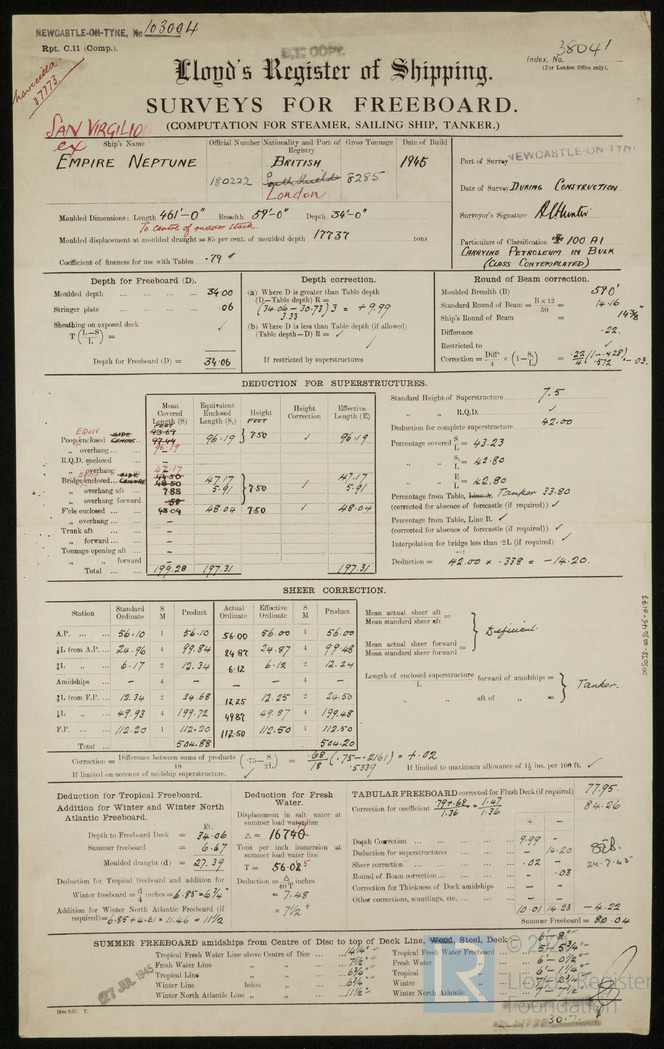 NEWCASTLE-ON-TYNE, No 103004
Rpt. C.11 (Comp.).
38041
Index. No.
(For London Office only).
37773
Lloyd's Register of Shipping.
SURVEYS FOR FREEBOARD.
(COMPUTATION FOR STEAMER, SAILING SHIP, TANKER.)
SAN VIRGILIO
ex
Ship's Name Official Number Nationality and Port of Registry Gross Tonnage Date of Build
EMPIRE NEPTUNE 180222 BRITISH South Shields London 8285 1945
Port of Survey NEWCASTLE-ON-TYNE
Date of Survey DURING CONSTRUCTION
Surveyor's Signature
Particulars of Classification 100 A1
CARRYING PETROLEUM IN BULK
(CLASS CONTEMPLATED)
Moulded Dimensions: Length 461'-0" Breadth 59'-0" Depth 34'-0"
To centre of rudder stock.
Moulded displacement at moulded draught = 85 per cent. of moulded depth 17737 tons
Coefficient of fineness for use with Tables .79
Depth for Freeboard (D).
Moulded depth ... 34.00
Stringer plate ... .06
Sheathing on exposed deck ✓
T (L–S / L) =
Depth for Freeboard (D) = 34.06
Depth correction.
(a) Where D is greater than Table depth
(D–Table depth) R =
(34.06 – 30.73) 3 = + 9.99
3.33
(b) Where D is less than Table depth (if allowed)
(Table depth–D) R = ✓
If restricted by superstructures
Round of Beam correction.
Moulded Breadth (B) 59.0'
Standard Round of Beam = B×12 / 50 = 14.16
Ship's Round of Beam = 14 3/8"
Difference .22
Restricted to ✓
Correction = Diffce / 4 × (1 – S₁ / L) = .22 / 4 (1 – .428) .572 = –.03
DEDUCTION FOR SUPERSTRUCTURES.
Mean Covered Length (S) Equivalent Enclosed Length (S₁) Height Height Correction Effective Length (E)
FEET FEET
Poop enclosed EQUIV 96.19 96.19 7.50 ✓ 96.19
„ overhang ... –
R.Q.D. enclosed –
„ overhang
Bridge enclosed 47.17 47.17 7.50 ✓ 47.17
„ overhang aft ... 7.88 5.91 5.91
„ overhang forward
F'cle enclosed ... 48.04 48.04 7.50 ✓ 48.04
„ overhang ... –
Trunk aft ... –
„ forward ... –
Tonnage opening aft ... –
„ „ forward –
Total ... 199.28 197.31 197.31
Standard Height of Superstructure 7.5
„ „ R.Q.D. ✓
Deduction for complete superstructure 42.00
Percentage covered S / L = 43.23
„ „ S₁ / L = 42.80
„ „ E / L = 42.80
Percentage from Table, Line A. Tanker 33.80
(corrected for absence of forecastle (if required)) ✓
Percentage from Table, Line B. ✓
(corrected for absence of forecastle (if required)) ✓
Interpolation for bridge less than .2L (if required) ✓
Deduction = 42.00 × .338 = –14.20.
SHEER CORRECTION.
Station Standard Ordinate S M Product Actual Ordinate Effective Ordinate S M Product
A.P. ... 56.10 1 56.10 56.00 56.00 1 56.00
⅙L from A.P. ... 24.96 4 99.84 24.87 24.87 4 99.48
⅓L „ 6.17 2 12.34 6.12 6.12 2 12.24
Amidships ... – 4 – – 4 –
⅓L from F.P. ... 12.34 2 24.68 12.25 12.25 2 24.50
⅙L „ ... 49.93 4 199.72 49.87 49.87 4 199.48
F.P. ... 112.20 1 112.20 112.50 112.50 1 112.50
Total ... 504.88 504.20
Mean actual sheer aft / Mean standard sheer aft =
Mean actual sheer forward / Mean standard sheer forward =
Deficient.
Length of enclosed superstructure / L forward of amidships =
„ „ aft of „ =
Tanker.
Correction = Difference between sums of products / 18 (.75 – S / 2L) = .68 / 18 (.75 – .2161) .5339 = + .02
If limited on account of midship superstructure. If limited to maximum allowance of 1½ ins. per 100 ft. ✓
Deduction for Tropical Freeboard.
Addition for Winter and Winter North Atlantic Freeboard.
Ft.
Depth to Freeboard Deck = 34.06
Summer freeboard = 6.67
Moulded draught (d) = 27.39
Deduction for Tropical freeboard and addition for
Winter freeboard = d / 4 inches = 6.85 = 6¾"
Addition for Winter North Atlantic Freeboard (if
required) = 6.85 + 4.61 = 11.46 = 11½
Deduction for Fresh Water.
Displacement in salt water at summer load water line
Δ = 16740
Tons per inch immersion at summer load water line
T = 56.02
Deduction = Δ / 40 T inches
= 7.48
= 7½"
TABULAR FREEBOARD corrected for Flush Deck (if required) 77.95
Correction for coefficient .79 + .68 / 1.36 = 1.47 / 1.36 84.26
+ –
Depth Correction ... 9.99 –
Deduction for superstructures ... – 14.20
Sheer correction ... .02 –
Round of Beam correction ... – .03
Correction for Thickness of Deck amidships ... – –
Other corrections, scantlings, etc. ... – –
10.01 14.23 –4.22
Summer Freeboard = 80.04
24.7.45
SUMMER FREEBOARD amidships from Centre of Disc to top of Deck Line, Wood, Steel, Deck 6'–8"
Tropical Fresh Water Line above Centre of Disc ... 14¼" Tropical Fresh Water Freeboard 5'–5¾"
Fresh Water Line „ „ ... 7½" Fresh Water „ 6'–0½"
Tropical Line „ „ ... 6¾" Tropical „ 6'–1¼"
Winter Line below „ ... 6¾" Winter „ 7'–2¾"
Winter North Atlantic Line „ „ ... 11½" Winter North Atlantic „ 7'–7½"
27 JUL 1945
30.7.
© 20
Lloyd's Register
Foundation